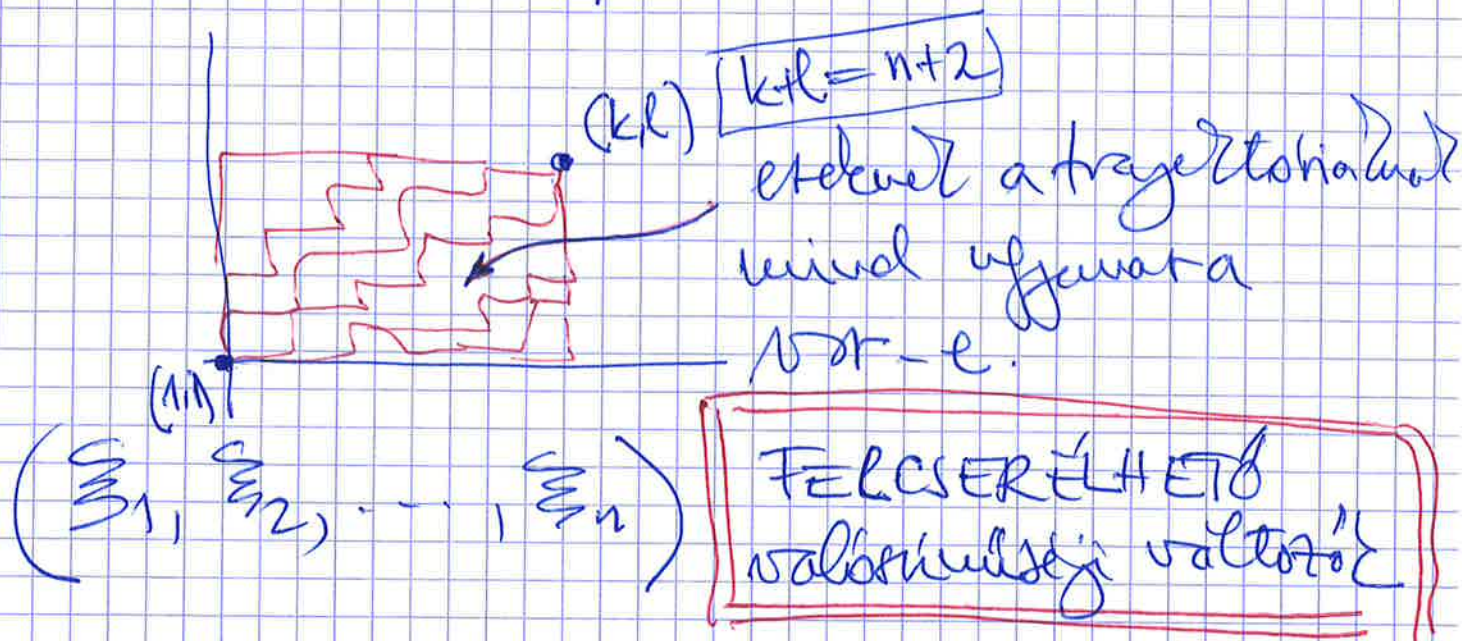 (k,l) k+l=n+2
ezeknek a trajektoriáknak
mind ugyanaz a
vsz-e.
(1,1)
(ξ1, ξ2, ..., ξn)
FELCSERÉLHETŐ
valószínűségi változók